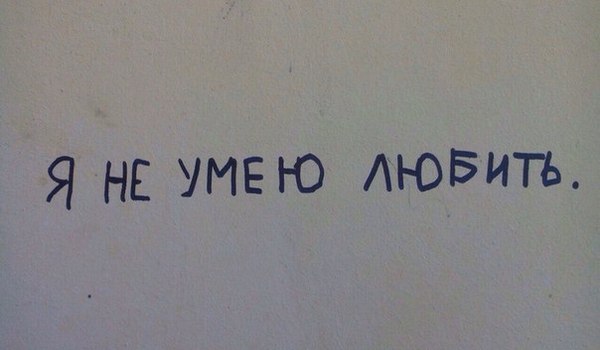 Я НЕ УМЕЮ ЛЮБИТЬ.